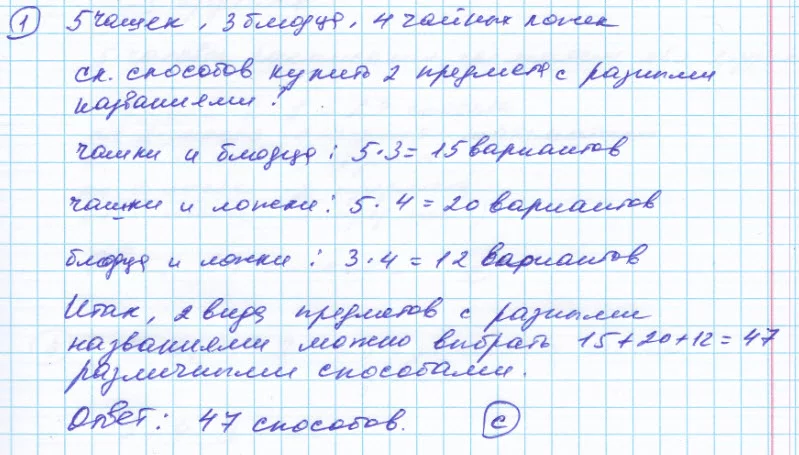 1 5 чашек, 3 блюдца, 4 чайных ложек
ск. способов купить 2 предмета с разными
названиями?
чашки и блюдца: 5·3=15 вариантов
чашки и ложки: 5·4=20 вариантов
блюдца и ложки: 3·4=12 вариантов
Итак, 2 вида предметов с разными
названиями можно выбрать 15+20+12=47
различными способами.
Ответ: 47 способов. С